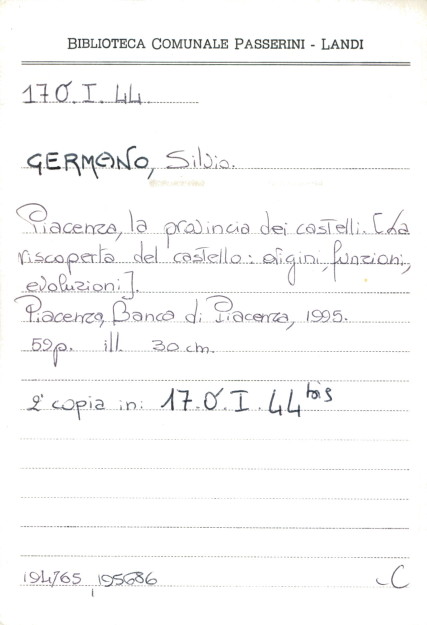 BIBLIOTECA COMUNALE PASSERINI - LANDI
17 O'. I. 44
GERMANO, Silvio.
Piacenza, la provincia dei castelli. [La
riscoperta del castello: origini, funzioni,
evoluzioni].
Piacenza, Banca di Piacenza, 1995.
59 p. ill. 30 cm.
2ª copia in: 17.O'.I.44 bis
194765 195686
C